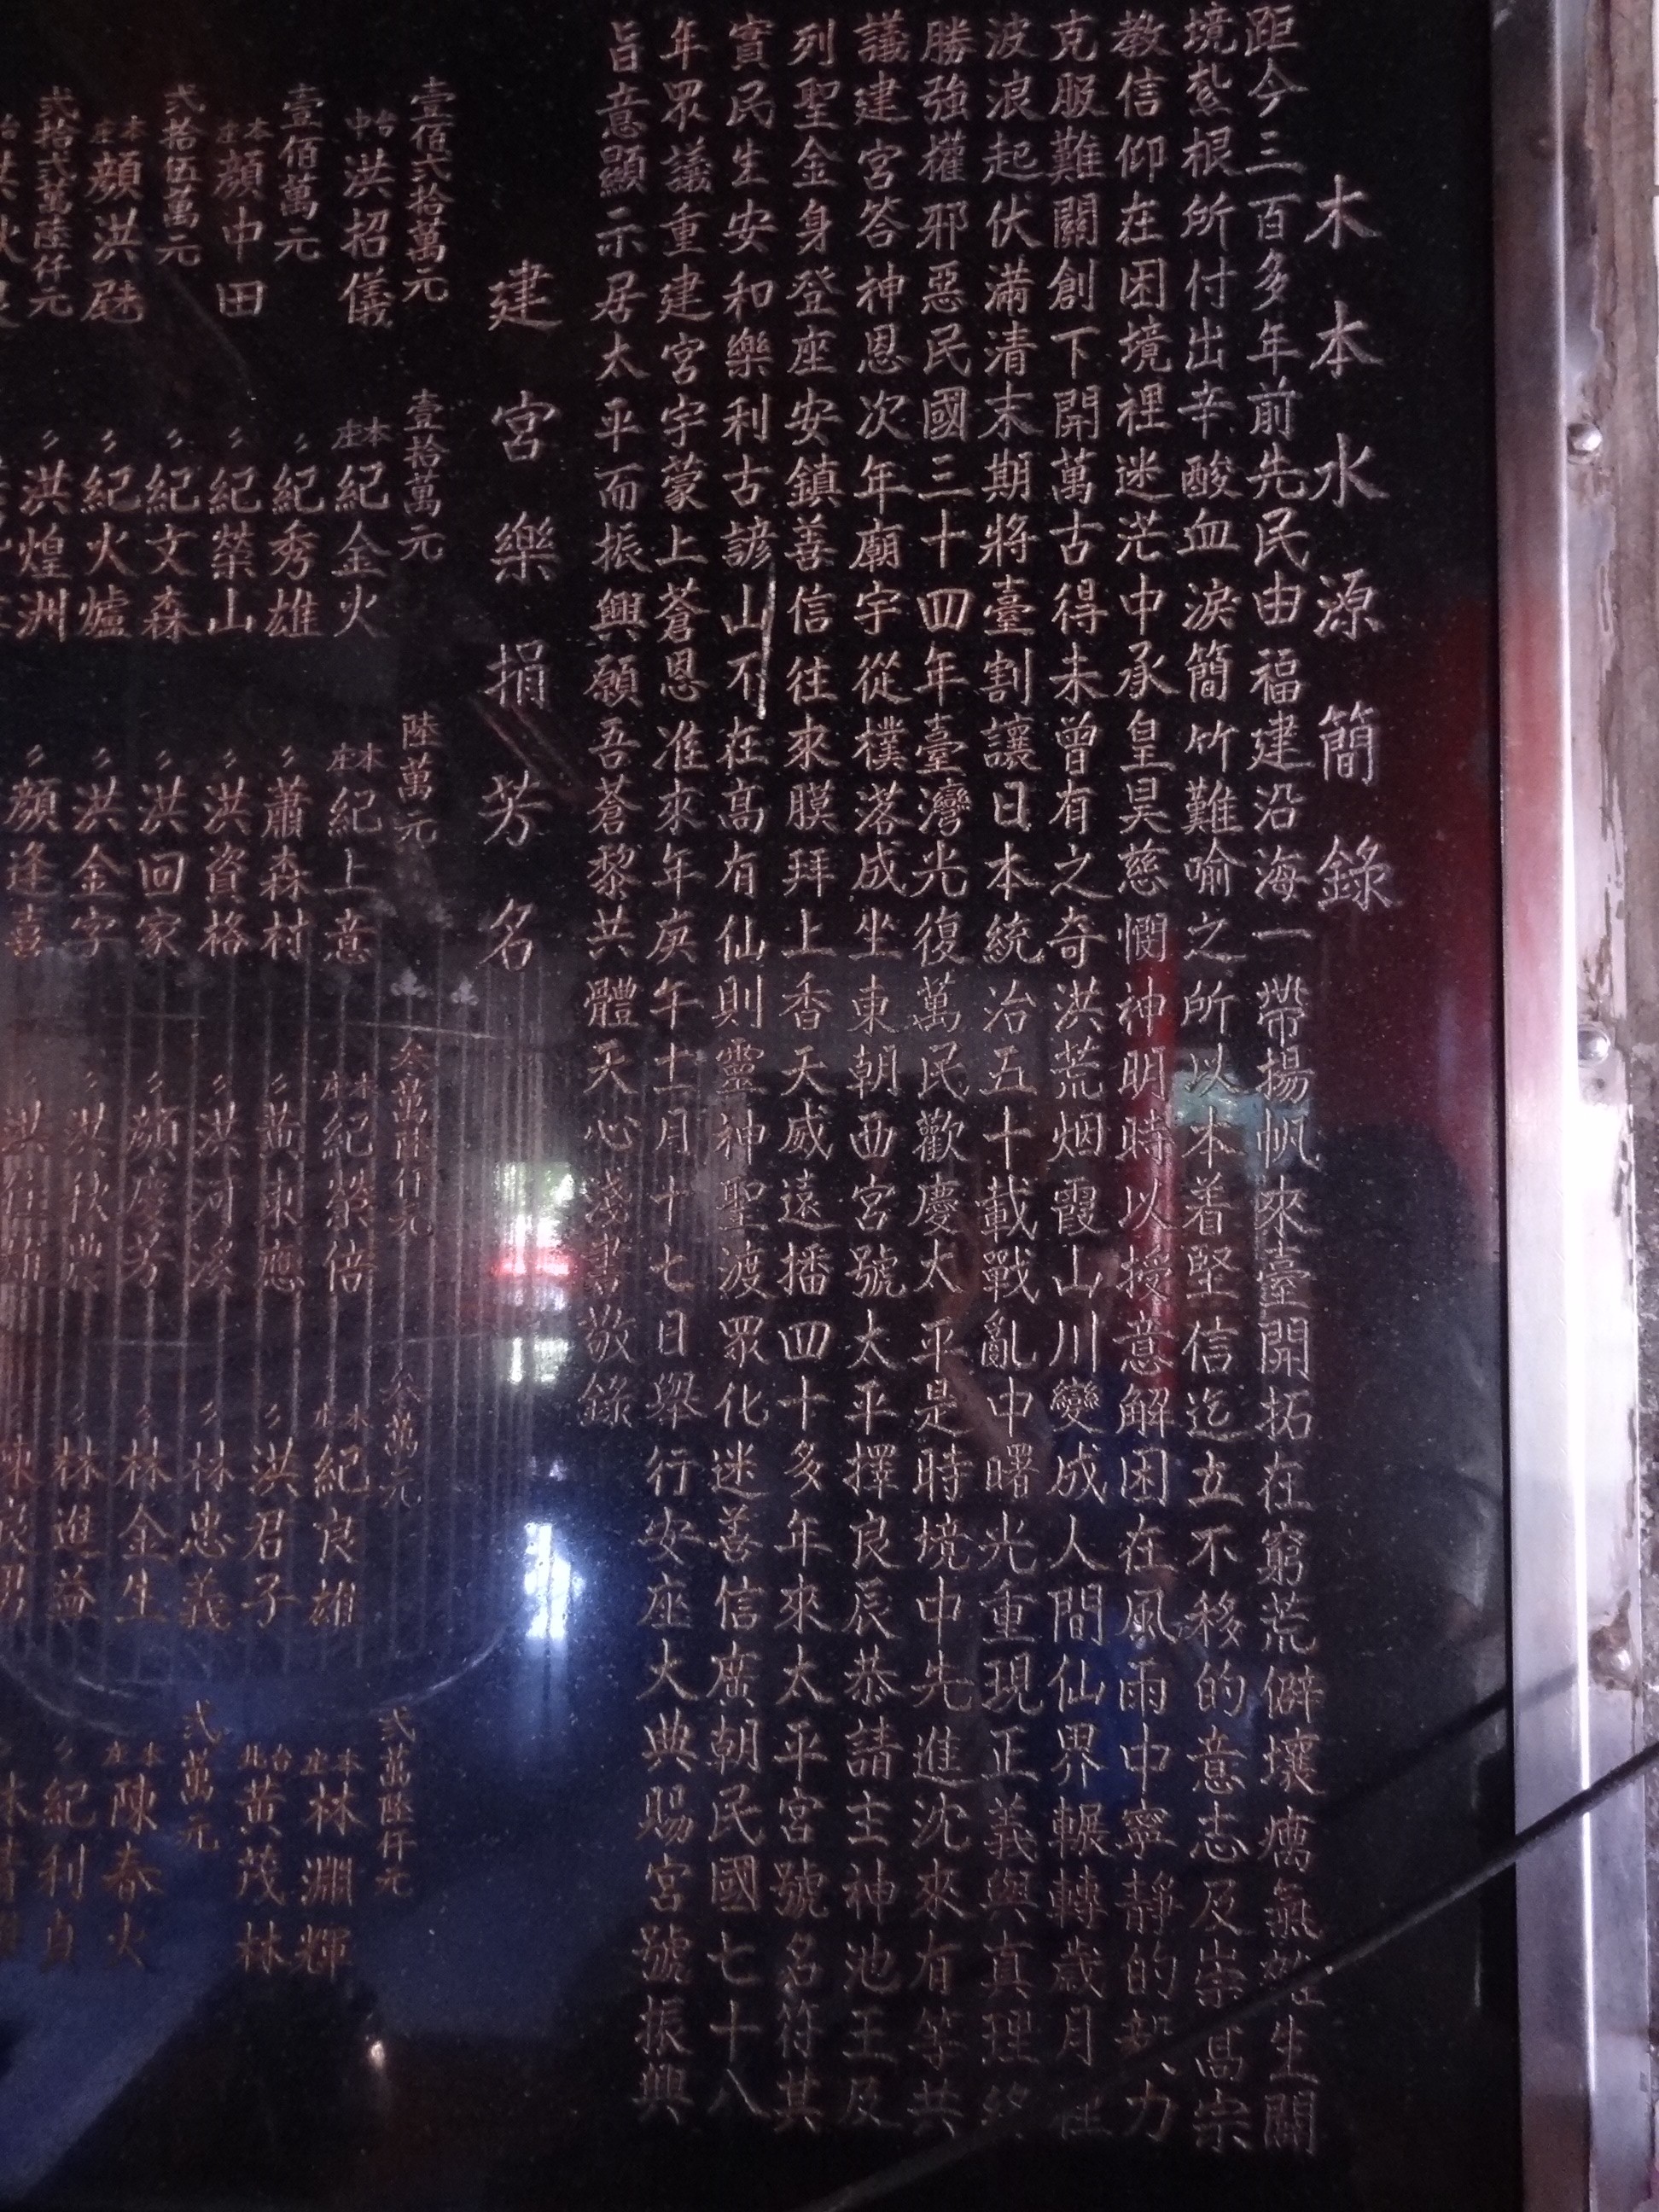 木本水源簡錄
距今三百多年前先民由福建沿海一帶揚帆來臺開拓在窮荒僻壤癘氣叢生關
境紮根所付出辛酸血淚簡竹難喻之所以本着堅信迄立不移的意志及崇高宗
教信仰在困境裡迷茫中承皇昊慈憫神明時以授意解困在風雨中寧靜的毅力
克服難關創下開萬古得未曾有之奇洪荒烟霞山川變成人間仙界輾轉歲月裡
波浪起伏滿清末期將臺割讓日本統治五十載戰亂中曙光重現正義與真理終
勝強權邪惡民國三十四年臺灣光復萬民歡慶太平是時境中先進沈來有等共
議建宮答神恩次年廟宇從樸落成坐東朝西宮號太平擇良辰恭請主神池王及
列聖金身登座安鎮善信往來膜拜上香天威遠播四十多年來太平宮號名符其
實民生安和樂利古諺山不在高有仙則靈神聖渡眾化迷善信廣朝民國七十八
年眾議重建宮宇蒙上蒼恩准來年庚午十一月十七日舉行安座大典賜宮號振興
旨意顯示居太平而振興願吾蒼黎共體天心淺書敬錄
建宮樂捐芳名
壹佰弍拾萬元
台中 洪招儀
壹佰萬元
本庄 顏中田
弍拾伍萬元
本庄 顏洪
弍拾弍萬陸仟元
壹拾萬元
本庄 紀金火
〃 紀秀雄
〃 紀榮山
〃 紀文森
〃 紀火爐
〃 洪煌洲
陸萬元
本庄 紀上意
〃 蕭森村
〃 洪資格
〃 洪回家
〃 洪金字
〃 顏逢喜
叁萬陸仟元
本庄 紀榮倍
〃 黃東應
〃 洪河溪
〃 顏慶芳
〃 洪秋典
叁萬元
本庄 紀良雄
〃 洪君子
〃 林忠義
〃 林金生
〃 林進益
陳良男
弍萬陸仟元
本庄 林淵輝
台北 黃茂林
弍萬元
本庄 陳春火
〃 紀利貞